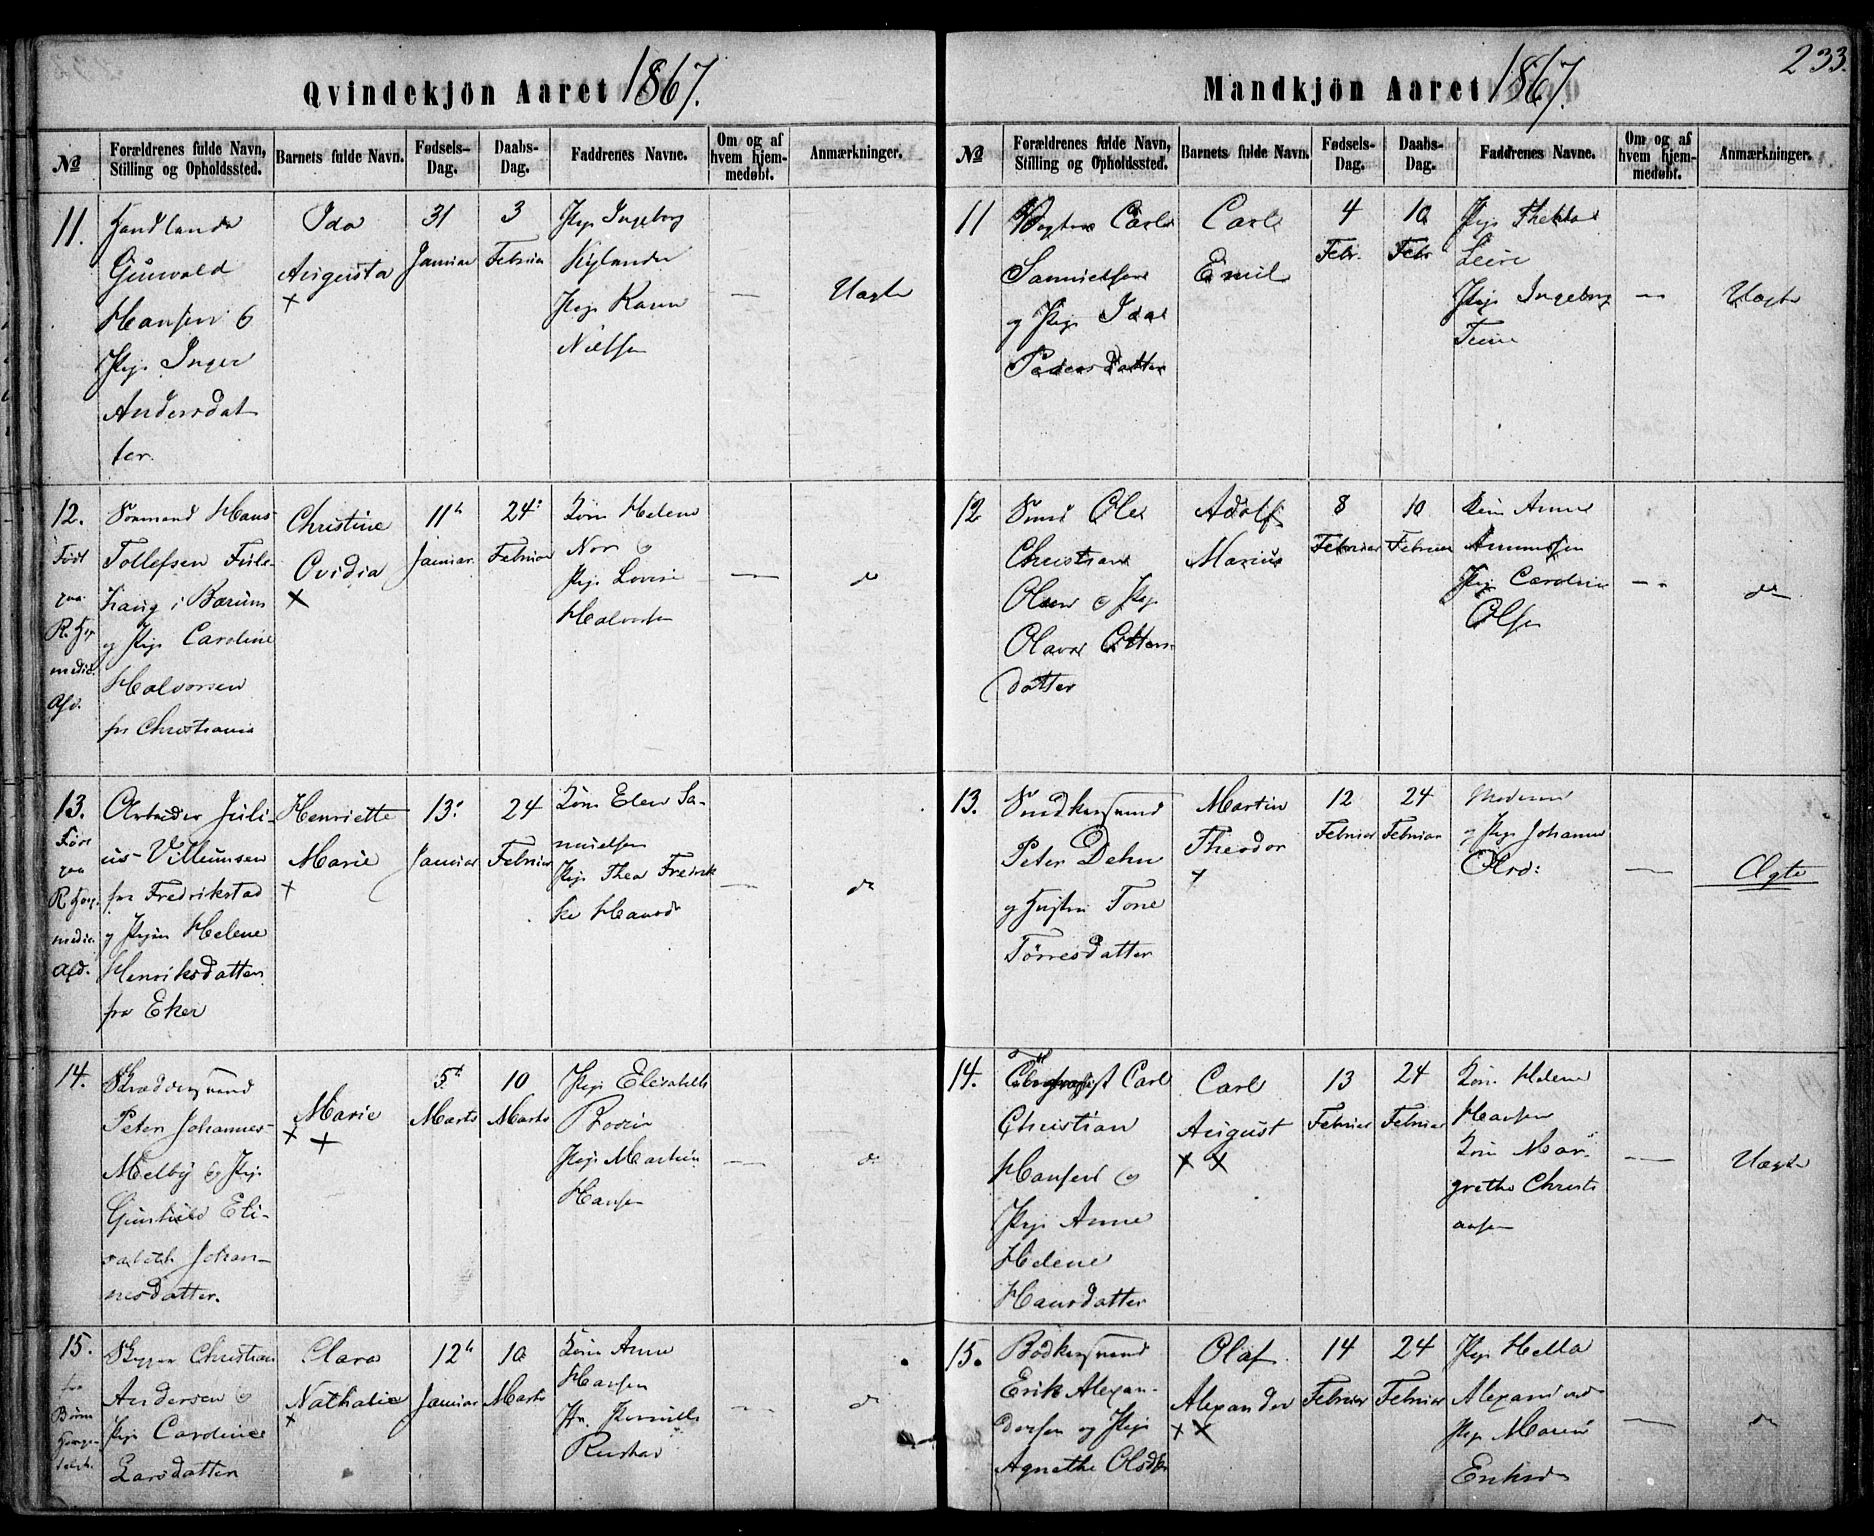 233.
Qvindekjön Aaret 1867.
№
Forældrenes fulde Navn,
Stilling og Opholdssted.
Barnets fulde Navn.
Fødsels-
Dag.
Daabs-
Dag.
Faddrenes Navne.
Om og af
hvem hjem-
medøbt.
Anmærkninger.
11.
Gunvald
Hansen &
Pige Inger
Andersdat
ter.
Ida
Augusta
×
31
Januar
3
Februar
Pige Ingeborg
Pige Karen
Nielsen
—
Uægte
12.
Født
paa
medic.
Afd.
Sømand Hans
Tollefsen
i Bærum
og Pige Caroline
Halvorsen
fra Christiania
Christine
Ovidia
×
11te
Januar
24
Februar
Kone Helene
Pige Lovise
Halvorsen
—
do
13.
Født
paa
medic.
Afd.
Arbeider Juli-
us Villumsen
fra Fredrikstad
og Pigen Helene
Henriksdatter
fra Eker
Henriette
Marie
×
13
Januar
24
Februar
Kone Elen Sa-
muelsen
Pige Thea Fredrik
ke Hansd
—
do
14.
Skræddersvend
Peter Johannes-
Melby & Pige
Gunhild Eli-
sabeth Johan-
nesdatter.
Marie
× ×
5te
Marts
10
Marts
Pige Elisabeth
Pige Martin
Hansen
—
do
15.
fra
Skipper Christian
Andersen &
Pige Caroline
Larsdatter
Clara
Nathalie
×
12te
Januar
10
Marts
Kone Anne
Hansen
Rustad
—
do
Mandkjön Aaret 1867.
№
Forældrenes fulde Navn,
Stilling og Opholdssted.
Barnets fulde Navn.
Fødsels-
Dag.
Daabs-
Dag.
Faddrenes Navne.
Om og af
hvem hjem-
medøbt.
Anmærkninger.
11
Vogter Carl
Samuelsen
og Pige Ida
Pedersdatter
Carl
Emil
4
Febr.
10
Febr
Pige Thekla
Pige Ingeborg
—
Uægte
12
Smed Ole
Christian
Olsen & Pige
Olava Otters
datter
Adolf
Marius
8
Februar
10
Februar
Kone Anne
Amundsen
Pige Caroline
Olsen
—
do
13.
Smedkersvend
Peter Dehn
og Hustru Tone
Tørresdatter
Martin
Theodor
×
12
Februar
24
Februar
Moderen
og Pige Johanne
Olsd:
—
Ægte
14.
Carl
Christian
Hansen &
Pige Anne
Helene
Hansdatter
Carl
August
× ×
13
Februar
24
Februar
Kone Helene
Hansen
Kone Mar-
grethe Christi
ansen
—
Uægte
15.
Bødkersvend
Erik Alexan-
dersen og Pige
Agnethe Olsdtr
Olaf
Alexander
× ×
14
Februar
24
Februar
Pige Hella
Alexandersd
Pige Maren
Eriksd
—
do